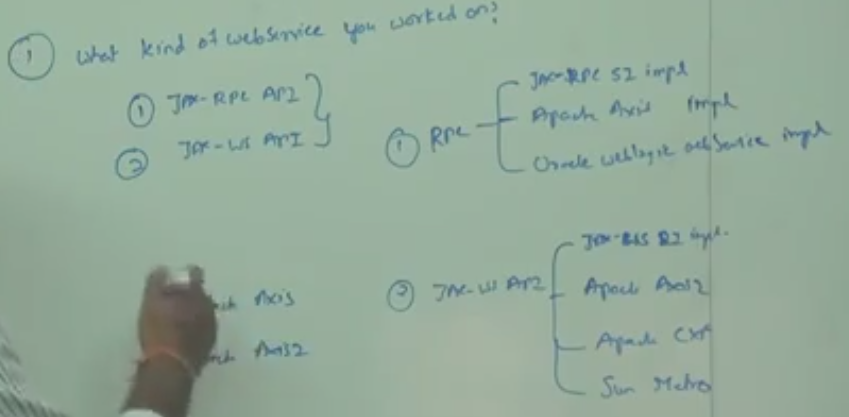 ① What kind of webservice you worked on?
① JAX-RPC API
② JAX-WS API
① RPC
JAX-RPC SI impl
Apache Axis impl
Oracle weblogic webService impl
② JAX-WS API
JAX-WS RI impl.
Apache Axis2
Apache CXF
Sun Metro
Axis
Axis2